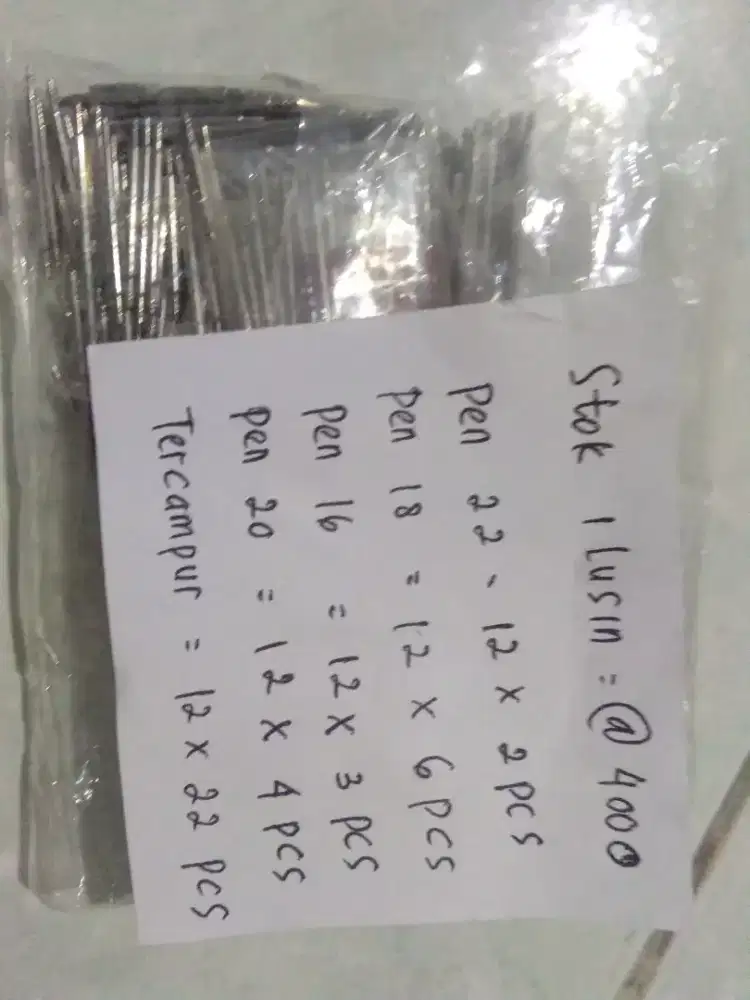 Stok 1 Lusin = @ 4000
Pen 22 - 12 x 2 pcs
Pen 18 = 12 x 6 pcs
Pen 16 = 12 x 3 pcs
Pen 20 = 12 x 4 pcs
Tercampur = 12 x 22 pcs